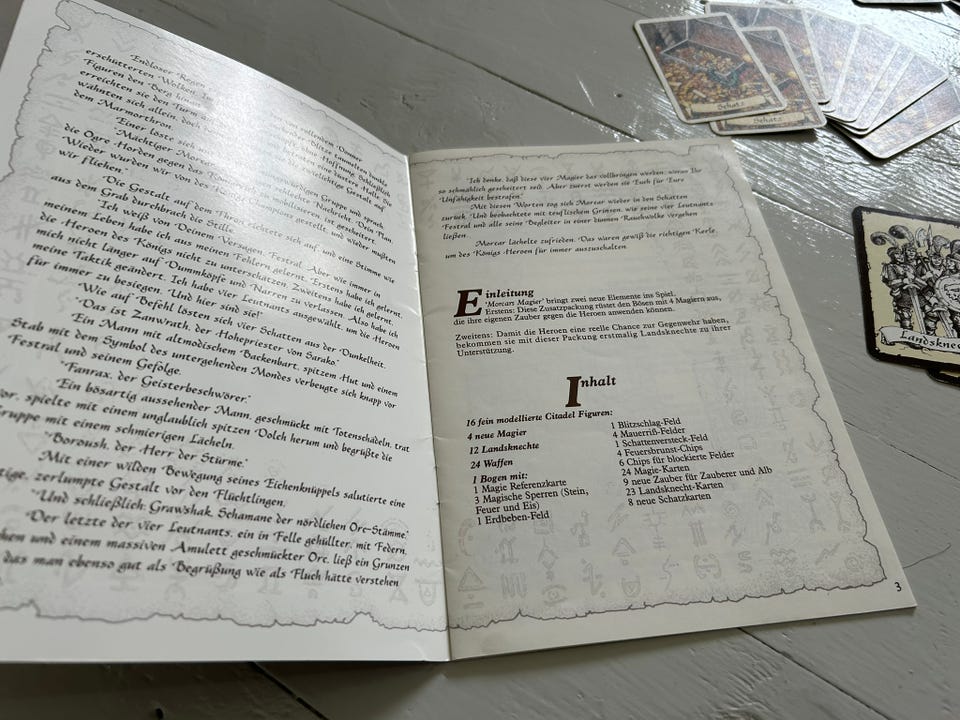 Endloser Regen
erschütterten Wolken.
Figuren den Berg hinauf
erreichten sie den Turm
wähnten sich allein, doch
dem Marmorthron.
Einer löste sich
"Mächtiger Morcar
die Ogre Horden gegen das
Wieder wurden wir von des Königs Champions gestellt, und wieder mußten
wir fliehen."
Die Gestalt auf dem Thron richtete sich auf, und eine Stimme wie
aus dem Grab durchbrach die Stille.
"Ich weiß von Deinem Versagen, Festral. Aber wie immer in
meinem Leben habe ich aus meinen Fehlern gelernt. Erstens habe ich gelernt,
die Heroen des Königs nicht zu unterschätzen. Zweitens habe ich gelernt,
mich nicht länger auf Dummköpfe und Narren zu verlassen. Also habe ich
meine Taktik geändert. Ich habe vier Leutnants ausgewählt, um die Heroen
für immer zu besiegen. Und hier sind sie!"
Wie auf Befehl lösten sich vier Schatten aus der Dunkelheit.
"Das ist Zanwrath, der Hohepriester von Sarako."
Ein Mann mit altmodischem Backenbart, spitzem Hut und einem
Stab mit dem Symbol des untergehenden Mondes verbeugte sich knapp vor
Festral und seinem Gefolge.
"Fanrax, der Geisterbeschwörer."
Ein bösartig aussehender Mann, geschmückt mit Totenschädeln, trat
vor, spielte mit einem unglaublich spitzen Dolch herum und begrüßte die
Gruppe mit einem schmierigen Lächeln.
"Boroush, der Herr der Stürme."
Mit einer wilden Bewegung seines Eichenknüppels salutierte eine
zerlumpte Gestalt vor den Flüchtlingen.
"Und schließlich: Grawshak, Schamane der nördlichen Orc-Stämme."
Der letzte der vier Leutnants, ein in Felle gehüllter, mit Federn,
und einem massiven Amulett geschmückter Orc, ließ ein Grunzen
das man ebenso gut als Begrüßung wie als Fluch hätte verstehen
"Ich denke, daß diese vier Magier das vollbringen werden, woran Ihr
so schmählich gescheitert seid. Aber zuerst werden sie Euch für Eure
Unfähigkeit bestrafen."
Mit diesen Worten zog sich Morcar wieder in den Schatten
zurück. Und beobachtete mit teuflischem Grinsen, wie seine vier Leutnants
Festral und alle seine Begleiter in einer dunnen Rauchwolke vergehen
ließen.
Morcar lächelte zufrieden. Das waren gewiß die richtigen Kerle,
um des Königs Heroen für immer auszuschalten.
Einleitung
'Morcars Magier' bringt zwei neue Elemente ins Spiel.
Erstens: Diese Zusatzpackung rüstet den Bösen mit 4 Magiern aus,
die ihre eigenen Zauber gegen die Heroen anwenden können.
Zweitens: Damit die Heroen eine reelle Chance zur Gegenwehr haben,
bekommen sie mit dieser Packung erstmalig Landsknechte zu ihrer
Unterstützung.
Inhalt
16 fein modellierte Citadel Figuren:
4 neue Magier
12 Landsknechte
24 Waffen
1 Bogen mit:
1 Magie Referenzkarte
3 Magische Sperren (Stein,
Feuer und Eis)
1 Erdbeben-Feld
1 Blitzschlag-Feld
4 Mauerriß-Felder
1 Schattenversteck-Feld
4 Feuersbrunst-Chips
6 Chips für blockierte Felder
24 Magie-Karten
9 neue Zauber für Zauberer und Alb
23 Landsknecht-Karten
8 neue Schatzkarten
3
Schatz
Schatz
Landsknec